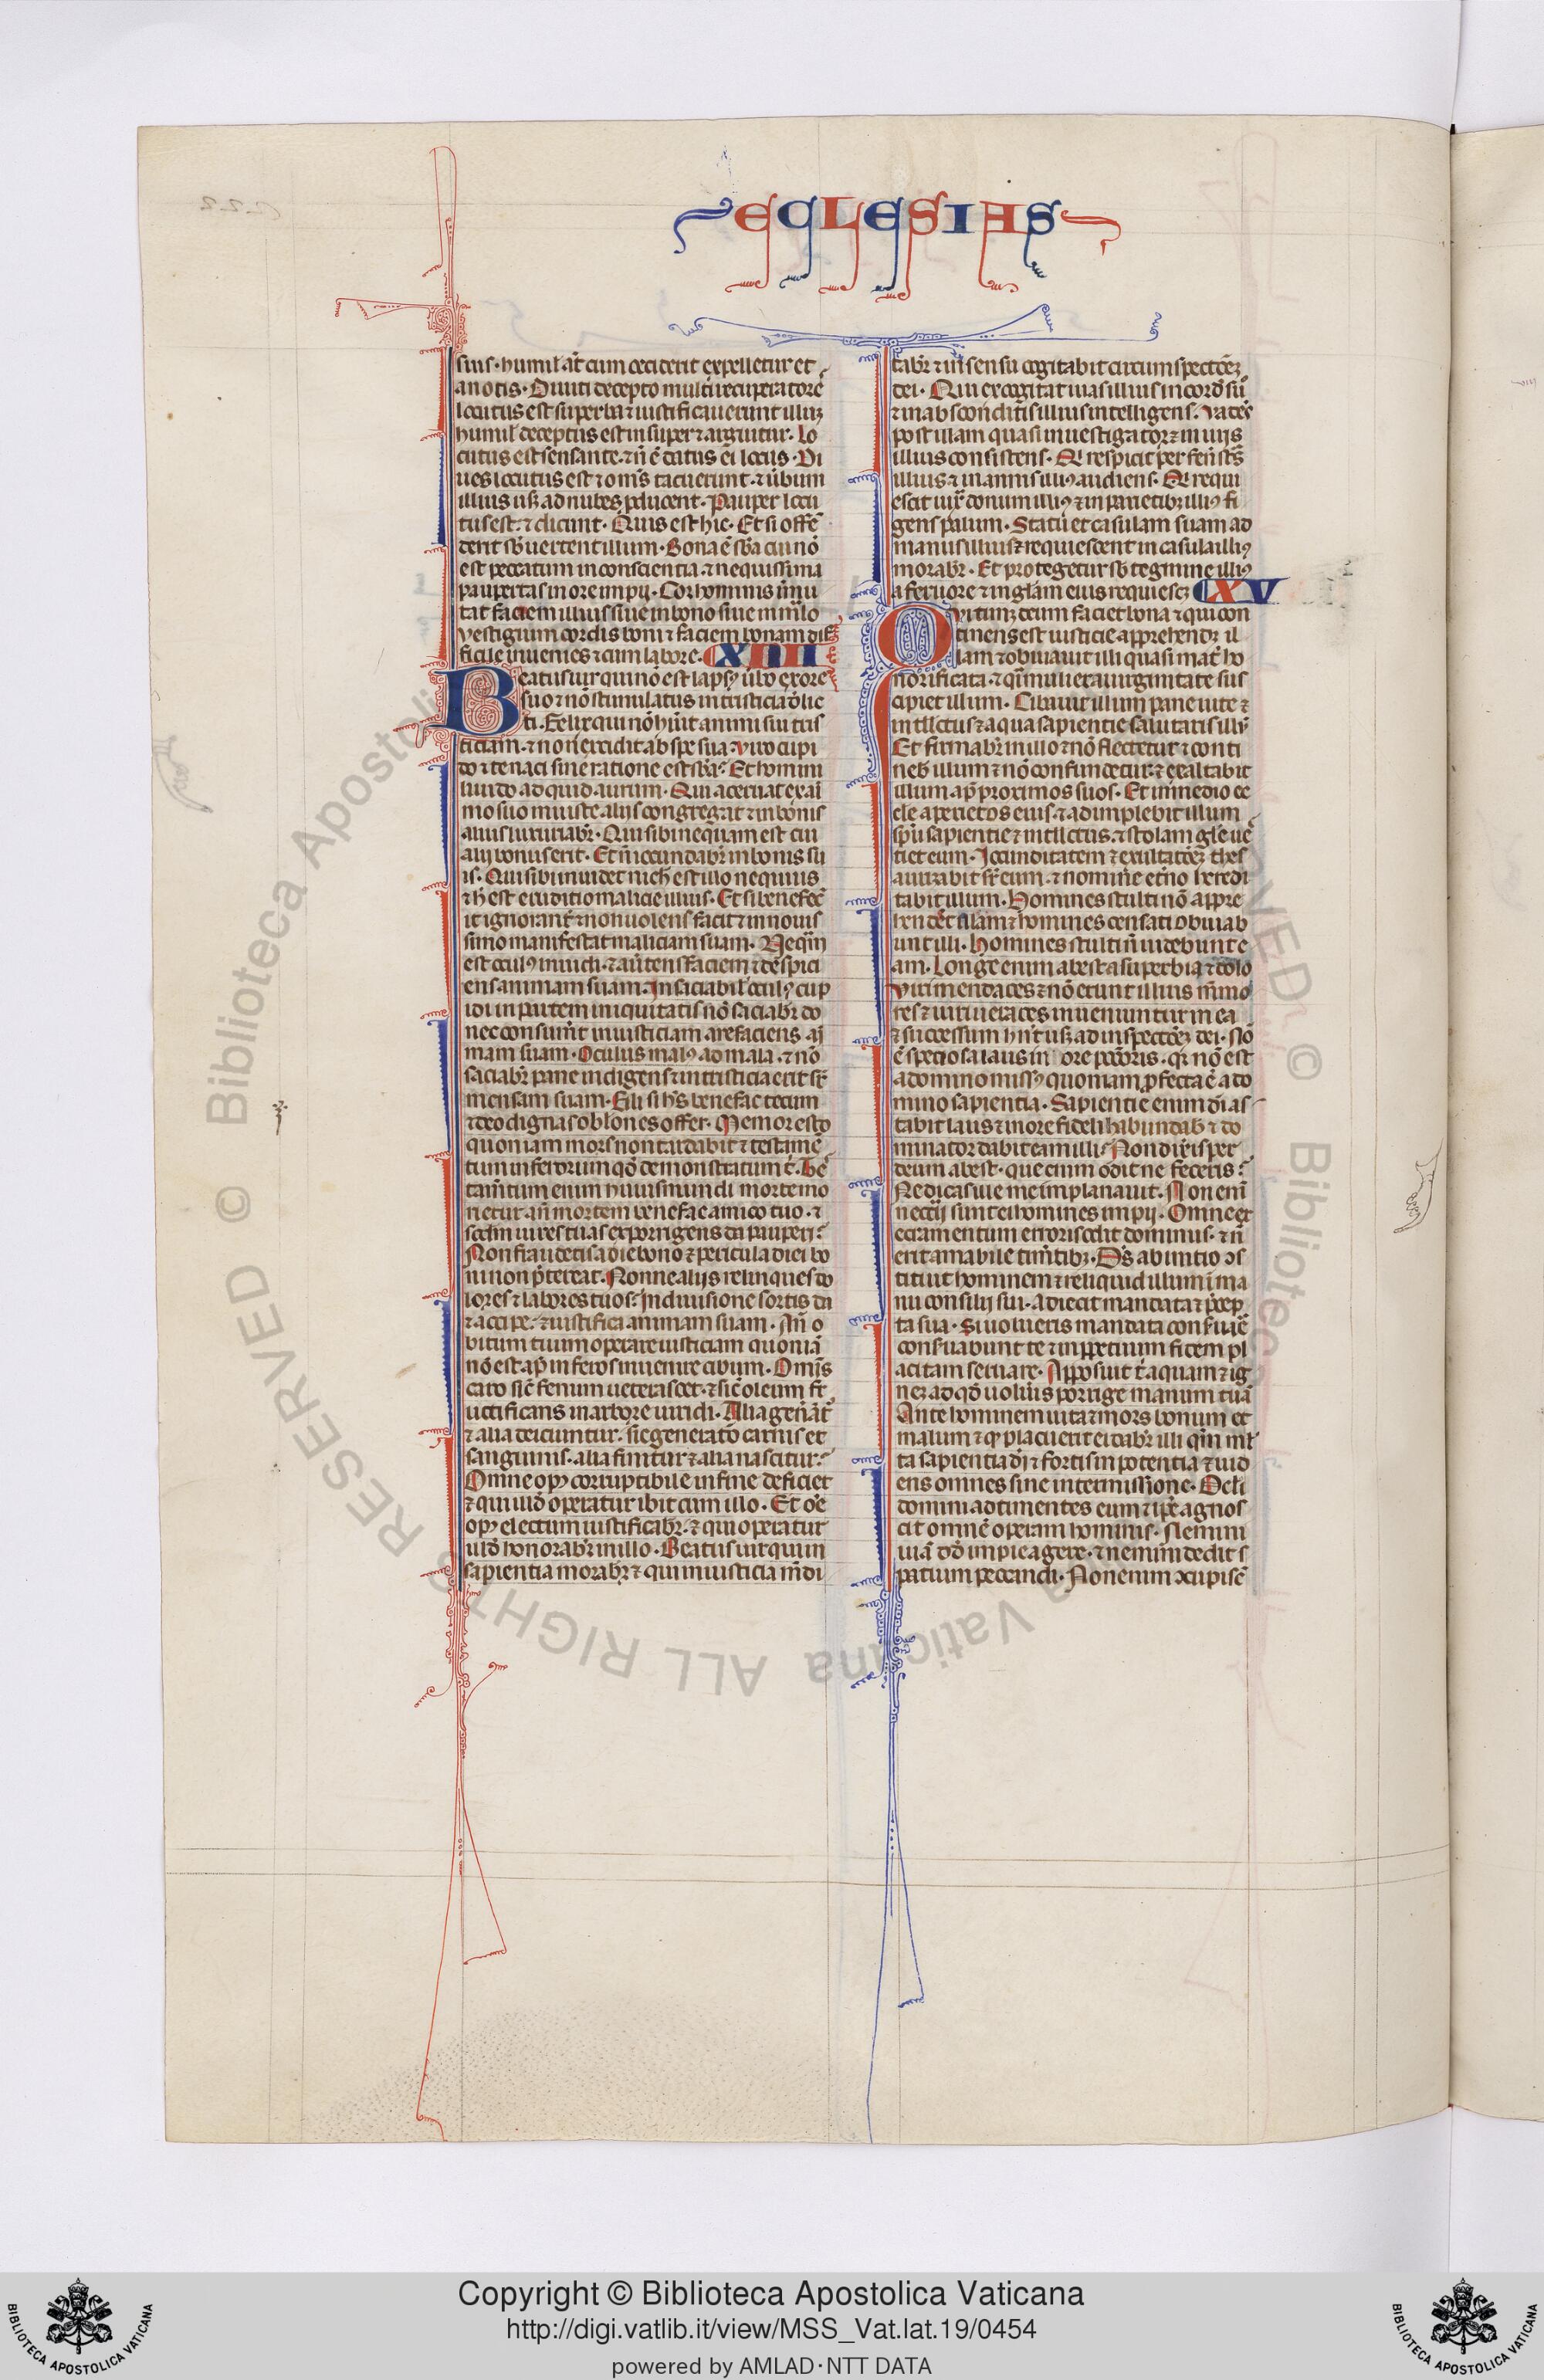 ECLESIAS
suis · humil' at̄ cum ceciderit expelletur et
a notis · Diuiti decepto multi recuperatorē
locutus est superba ⁊ iustificauerunt illuꝫ
humil' deceptus est insuper ⁊ arguitur · lo
cutus est sensate · ⁊ ñ ē datus ei locus · Di
ues locutus est ⁊ om̄s tacuerunt · ⁊ ūbum
illius usꝫ ad nubes ꝑducent · Pauper locu
tus est · ⁊ dicunt · Quis est hic · Et si offē
derit sb̄uertent illum · Bona ē sb̄a cui nō
est peccatum in conscientia · ⁊ nequissima
paupertas in ore impij · Cor hominis īmu
tat faciem illius siue in bono siue in malo
vestigium cordis boni ⁊ faciem bonam dif
ficile inuenies ⁊ cum labore · XIIII
Beatus uir qui nō est lapsꝰ ūbo ex ore
suo ⁊ nō stimulatus in tristicia d̄lic
ti · Felix qui nō hūit animi sui tris
ticiam · ⁊ non excidit ab spe sua · viro cupi
do ⁊ tenaci sine ratione est sb̄a · Et homini
liuido ad quid aurum · Qui aceruat ex aī
mo suo iniuste alijs congregat ⁊ in bonis
alius luxuriabr̄ · Qui sibi nequam est cui
alij bonus erit · Et ñ iocundabr̄ in bonis su
is · Qui sibi inuidet nich' est illo nequius
⁊ h̄ est redditio malicie illius · Et si benefec̄
it ignorant̄ ⁊ non uolens facit ⁊ in nouis
simo manifestat maliciam suam · Nequā
est oculꝰ inuidi · ⁊ auertens faciem ⁊ despici
ens animam suam · Insaciabil' oculꝰ cup
idi in partem iniquitatis nō saciabr̄ do
nec consum̄t iniusticiam arefaciens aī
mam suam · Oculus malꝰ ad mala · ⁊ nō
saciabr̄ pane indigens ⁊ in tristicia erit sr̄
mensam suam · Fili si hēs benefac tecum
⁊ deo dignas oblōnes offer · Memor esto
quoniam mors non tardabit ⁊ testamē
tum inferorum qd̄ demonstratum t̄ · Te
stam̄tum enim huius mundi morte mo
rietur · an̄ mortem benefac amico tuo · ⁊
scdm uires tuas exporrigens da pauperi ·
Non frauderis a die bono ⁊ pericula diei bo
ni non p̄tereat · Nonne alijs relinques do
lores ⁊ labores tuos · In diuisione sortis da
⁊ accipe · ⁊ iustifica animam suam · An̄ o
bitum tuum operare iusticiam quoniā
nō est ap̄ inferos inuenire cibum · Omīs
caro sic̄ fenum ueterascet · ⁊ sic̄ oleum fr
uctificans in arbore uiridi · Alia genāt̄
⁊ alia deiciuntur · sic generatō carnis et
sanguinis · alia finitur ⁊ alia nascitur ·
Omne opꝰ corruptibile in fine deficiet
⁊ qui illd̄ operatur ibit cum illo · Et oē
opꝰ electum iustificabr̄ · ⁊ qui operatur
illd̄ honorabr̄ in illo · Beatus uir qui in
sapientia morabr̄ ⁊ qui in iusticia m̄di
tabr̄ ⁊ in sensu cogitabit circumspectōeꝫ
dei · Qui excogitat uias illius in cord̄ sū
⁊ in absconditis illius intelligens · vadēs
post illam quasi inuestigator ⁊ in uijs
illius consistens · Qi respicit per fenestrās
illius ⁊ in ianuis illiꝰ audiens · Qi requi
escit iux̄ domum illiꝰ ⁊ in parietibꝫ illiꝰ fi
gens palum · Statuet casulam suam ad
manus illius ⁊ requiescent in casula illiꝰ
morabr̄ · Et protegetur sb̄ tegmine illiꝰ
a feruore ⁊ in gl̄a eius requiesceꝫ XV
Qui timꝫ deum faciet bona ⁊ qui con
tinens est iusticie apprehendꝫ il
lam ⁊ obuiauit illi quasi mat̄ ho
norificata · ⁊ qī mulier a uirginitate sus
cipiet illum · Cibauit illum pane uite ⁊
intll̄ctus ⁊ aqua sapientie salutaris illū
Et firmabr̄ in illo ⁊ nō flectetur ⁊ conti
neb̄ illum ⁊ nō confundetur · ⁊ exaltabit
illum ap̄ proximos suos · Et in medio ec
cle aperiet os eius · ⁊ adimplebit illum
sp̄u sapientie ⁊ intll̄ctus · ⁊ stolam gl̄e ue
stiet eum · Iocunditatem ⁊ exultatōeꝫ thes
aurizabit sr̄ eum · ⁊ nomine et̄no heredi
tabit illum · Homines stulti nō appre
hendet illam ⁊ homines censati obuiab
unt illi · Homines stulti ñ uidebunt e
am · Longe enim abest a superbia ⁊ dolo
Viri mendaces ⁊ nō erunt illius m̄mo
res ⁊ uiri ueraces inueniuntur in ea
⁊ successum hn̄t usꝫ ad inspectōeꝫ dei · Nō
ē speciosa laus in ore pcc̄oris · qī nō est
a domino missꝰ quoniam ꝓfecta ē a do
mino sapientia · Sapientie enim d̄i as
tabit laus ⁊ in ore fideli habundab̄ ⁊ do
minator dabit eam illi · Non dixeris per
deum abest · que enim odit ne feceris ·
Ne dicas ille me implanauit · Non enī
neccij sunt ei homines impij · Omne ex
ecramentum erroris odit dominus · ⁊ ñ
erit amabile tim̄tibꝫ · Ds̄ ab initio ↄs
tituit hominem ⁊ reliquid illum ī ma
nu consilij sui · Adiecit mandata ⁊ p̄cep
ta sua · Si uolueris mandata conseruāē
conseruabunt te ⁊ in ꝑpetuum fidem pl
acitam seruare · Apposuit t̄ aquam ⁊ ig
neꝫ ad qd̄ uolūis porrige manum tuā
Ante hominem uita ⁊ mors bonum et
malum ⁊ qd̄ placuerit ei dabr̄ illi qm̄ ml̄
ta sapientia d̄i ⁊ fortis in potentia ⁊ uid
ens omnes sine intermissione · Ocl̄i
domini ad timentes eum ⁊ ip̄e agnos
cit omnē operam hominis · Nemini
mād̄d impie agere · ⁊ nemini dedit s
patium peccandi · Non enim ↄcupiscē
Copyright © Biblioteca Apostolica Vaticana
http://digi.vatlib.it/view/MSS_Vat.lat.19/0454
powered by AMLAD·NTT DATA
BIBLIOTECA APOSTOLICA VATICANA
BIBLIOTECA APOSTOLICA VATICANA
© Biblioteca Apostolica Vaticana ALL RIGHTS RESERVED